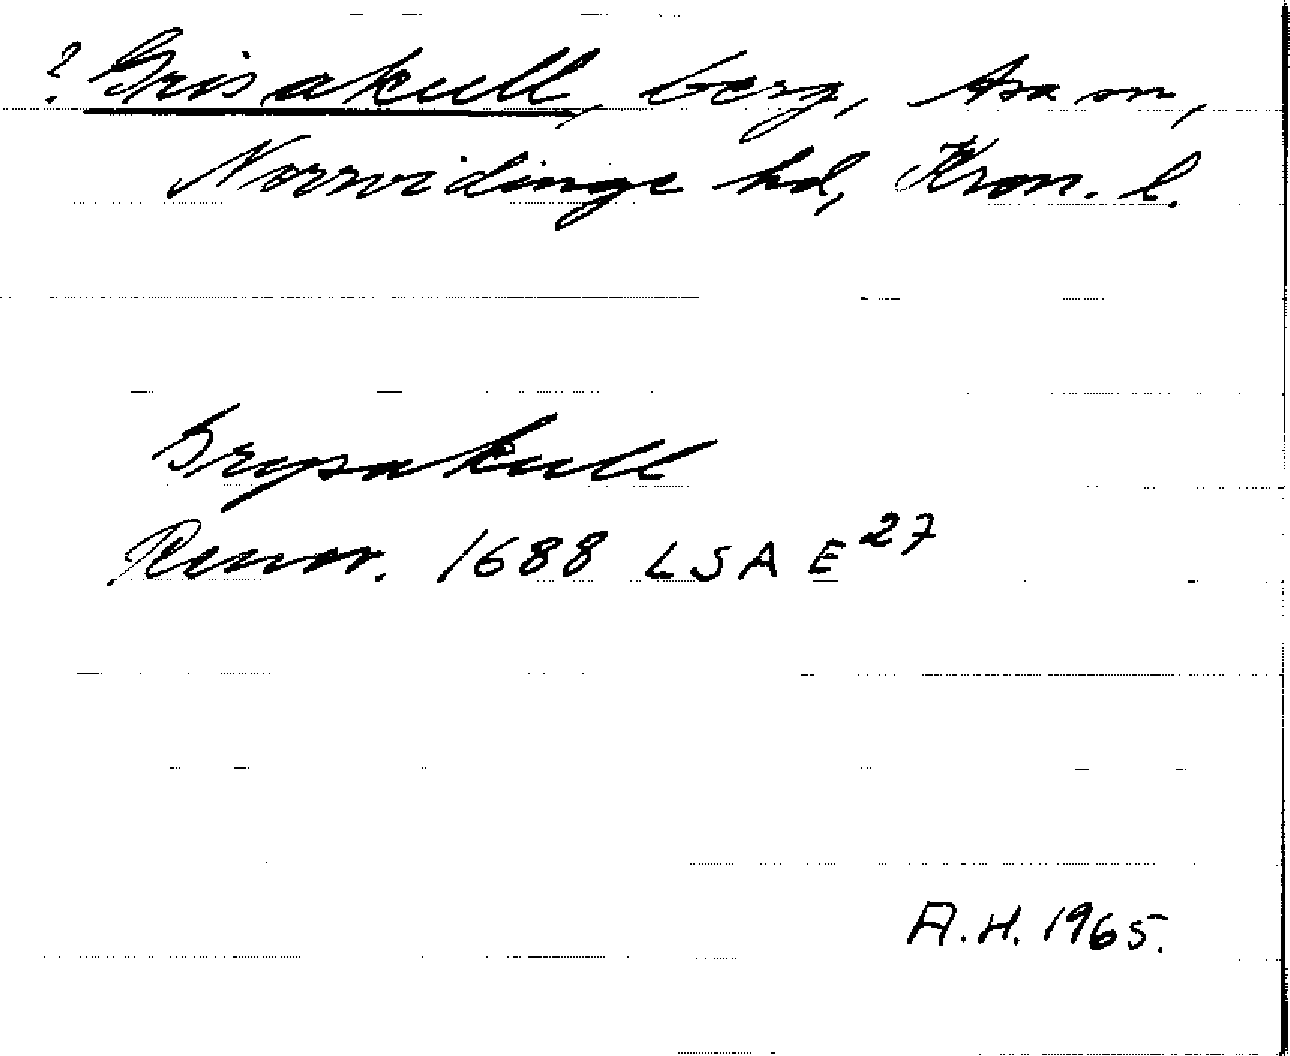 ? Grisakull, berg, Asa sn,
Norrvidinge hd, Kron. l.
Grysakull
Renov. 1688 LSA E27
A.H. 1965.